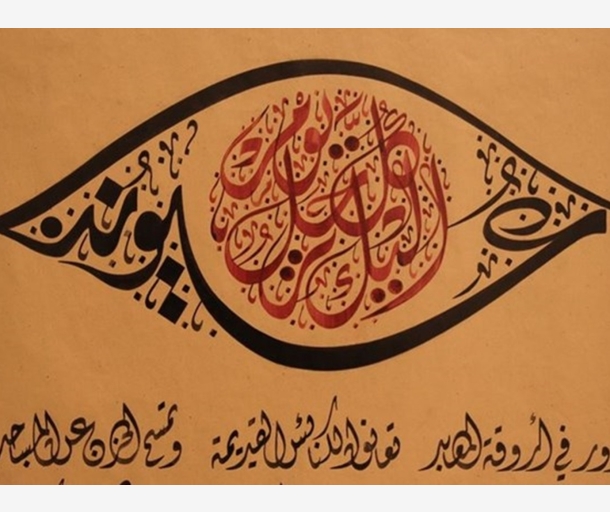 عيوننا
إليك ترحل كل يوم
ور في أروقة المعابد تعانق الكنائس القديمة وتمسح الحزن عن المساجد